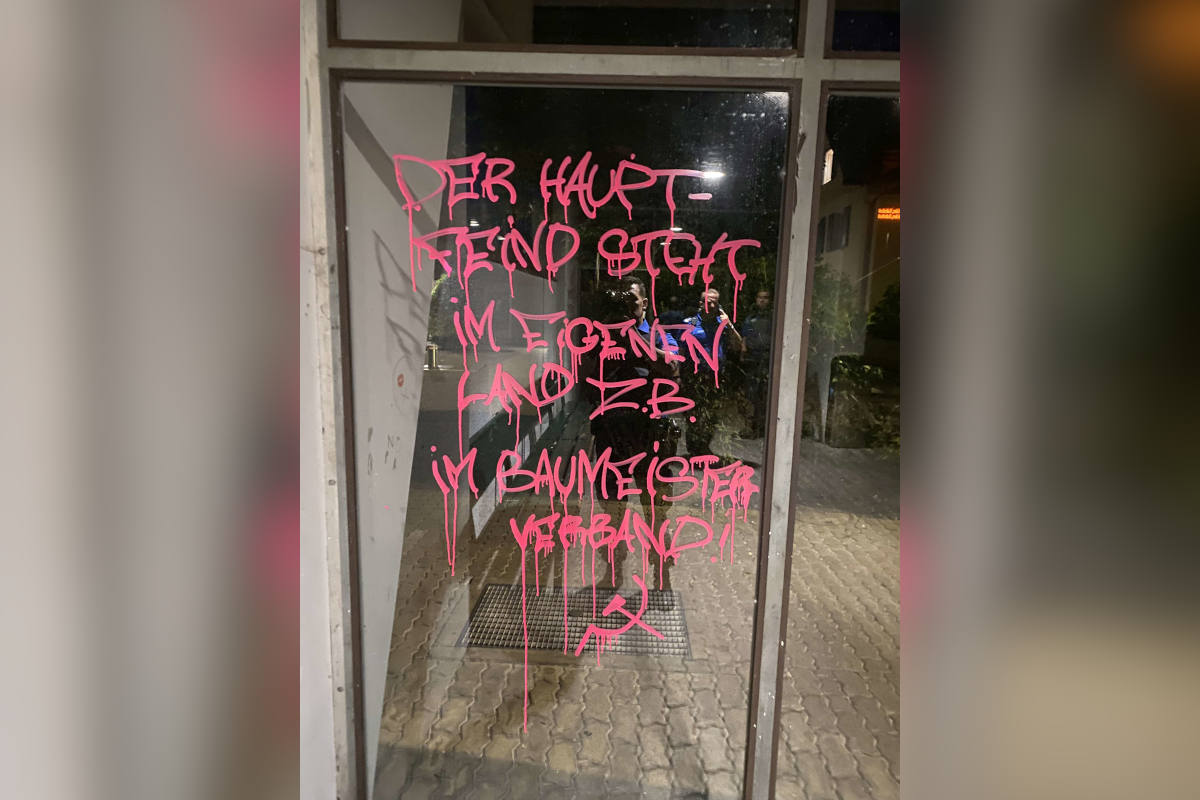 DER HAUPT-
FEIND STEHT
IM EIGENEN
LAND Z.B.
IM BAUMEISTER
VERBAND!